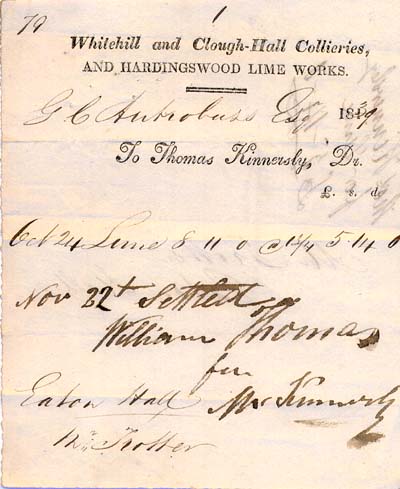 79
1
Whitehill and Clough-Hall Collieries,
AND HARDINGSWOOD LIME WORKS.
G C Antrobus Esqr 1839
To Thomas Kinnersly, Dr.
£. s. d.
Oct 24 Lime 8 11 0 @ 5 14 0
Nov 22 Settled
William Thomas
for
Mr Kinnersly
Eaton Hall
Trotter